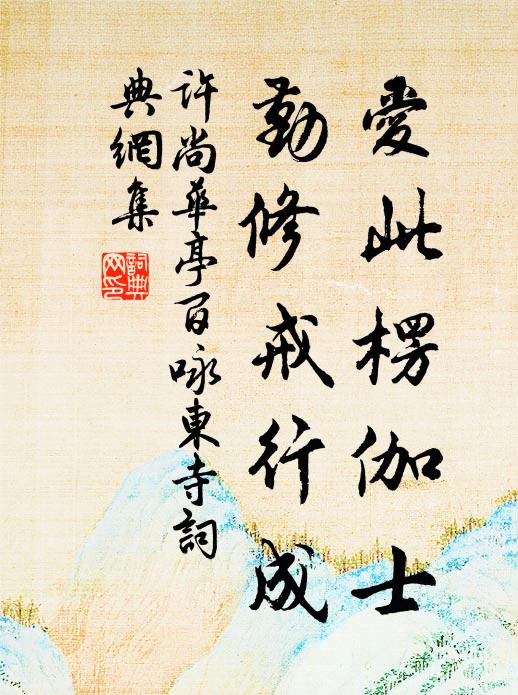 愛此楞伽士
勤修戒行成
許尚華亭百咏東寺詞
典網集
詞典
网印